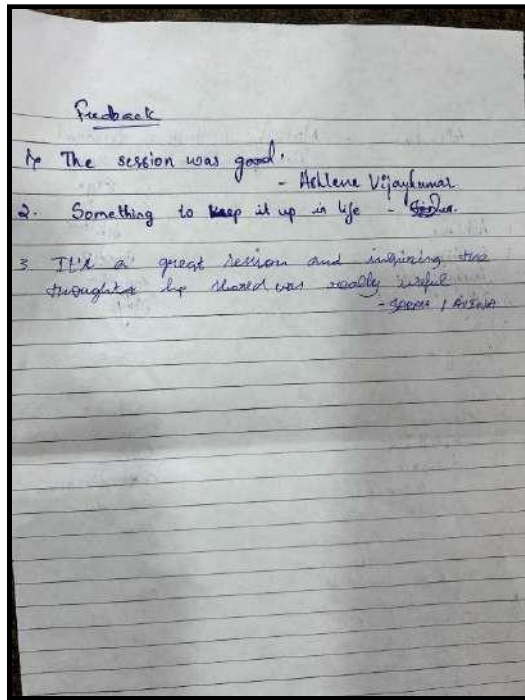 Feedback
The session was good.
- Ashlene Vijaykumar
2. Something to keep it up in life -
3 It's a great session and inspiring the
thoughts he shared was really useful